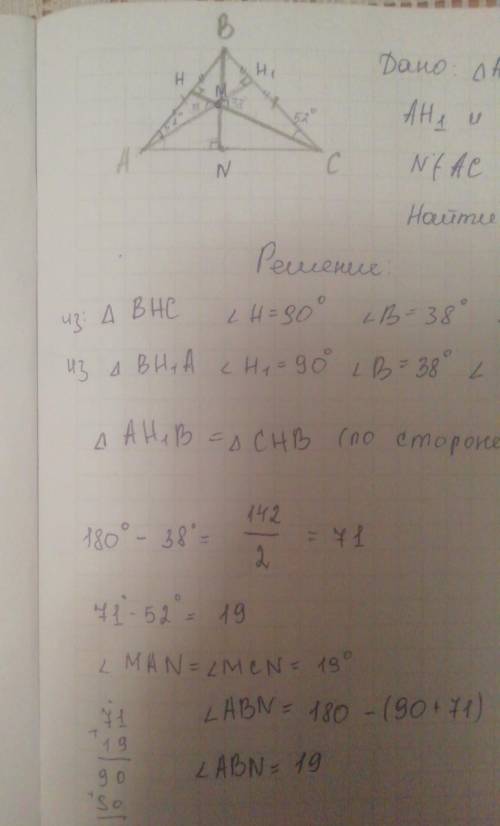 B
H
H₁
M
52°
52°
A
N
C
Дано: △A
AH₁ и
N∈AC
Найти
Решение:
из: △ BHC ∠H=90° ∠B=38°
из △ BH₁A ∠H₁=90° ∠B=38° ∠
△ AH₁B = △ CHB (по стороне
180° - 38° = 142/2 = 71
71° - 52° = 19
∠MAN = ∠MCN = 19°
71
+19
90
+90
∠ABN = 180 - (90+71)
∠ABN = 19